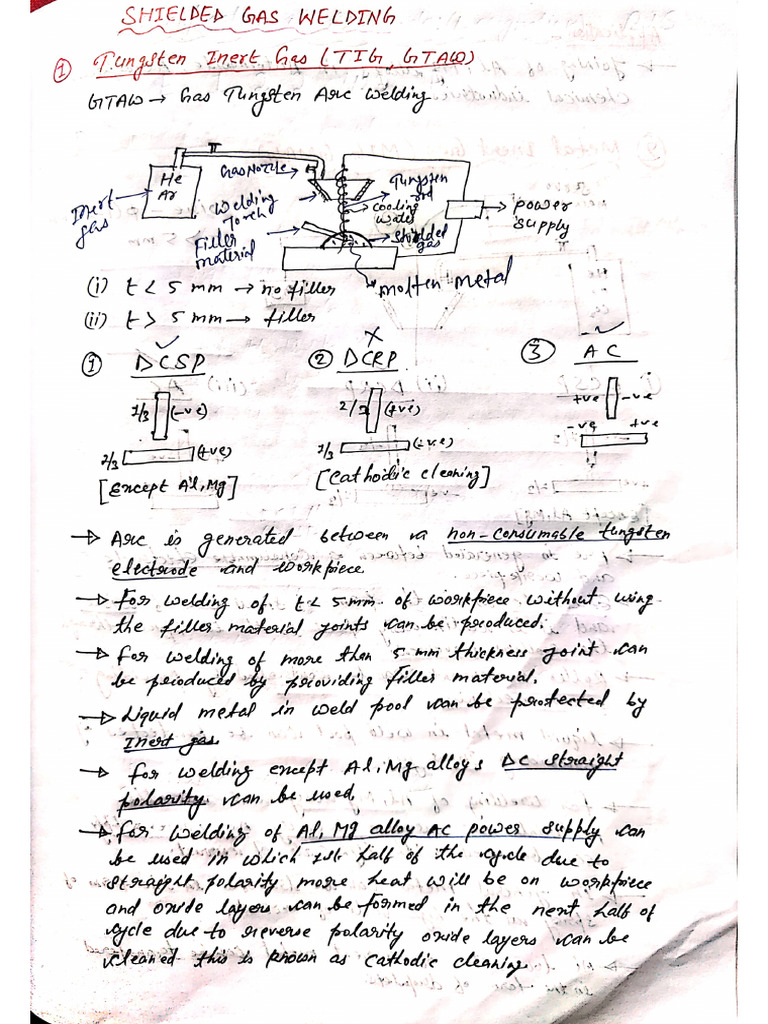 SHIELDED GAS WELDING
① Tungsten Inert Gas (TIG, GTAW)
GTAW → Gas Tungsten Arc Welding
He
Ar
Inert gas
Gas Nozzle
Welding Torch
Filler material
Tungsten rod
cooling water
Shielded gas
power supply
molten metal
(i) t < 5 mm → no filler
(ii) t > 5 mm → filler
① DCSP
② DCRP
③ AC
1/3 (-ve)
2/3 (+ve)
[Except Al, Mg]
2/3 (+ve)
1/3 (-ve)
[Cathodic cleaning]
+ve -ve
-ve +ve
→ Arc is generated between a non-consumable tungsten
electrode and workpiece
→ For welding of t < 5mm of workpiece without using
the filler material joints can be produced.
→ for welding of more than 5 mm thickness joint can
be produced by providing filler material.
→ Liquid metal in weld pool can be protected by
Inert gas.
→ for welding except Al, Mg alloys DC straight
polarity can be used.
→ for welding of Al, Mg alloy AC power supply can
be used in which 1st half of the cycle due to
straight polarity more heat will be on workpiece
and oxide layers can be formed in the next half of
cycle due to reverse polarity oxide layers can be
cleaned this is known as cathodic cleaning